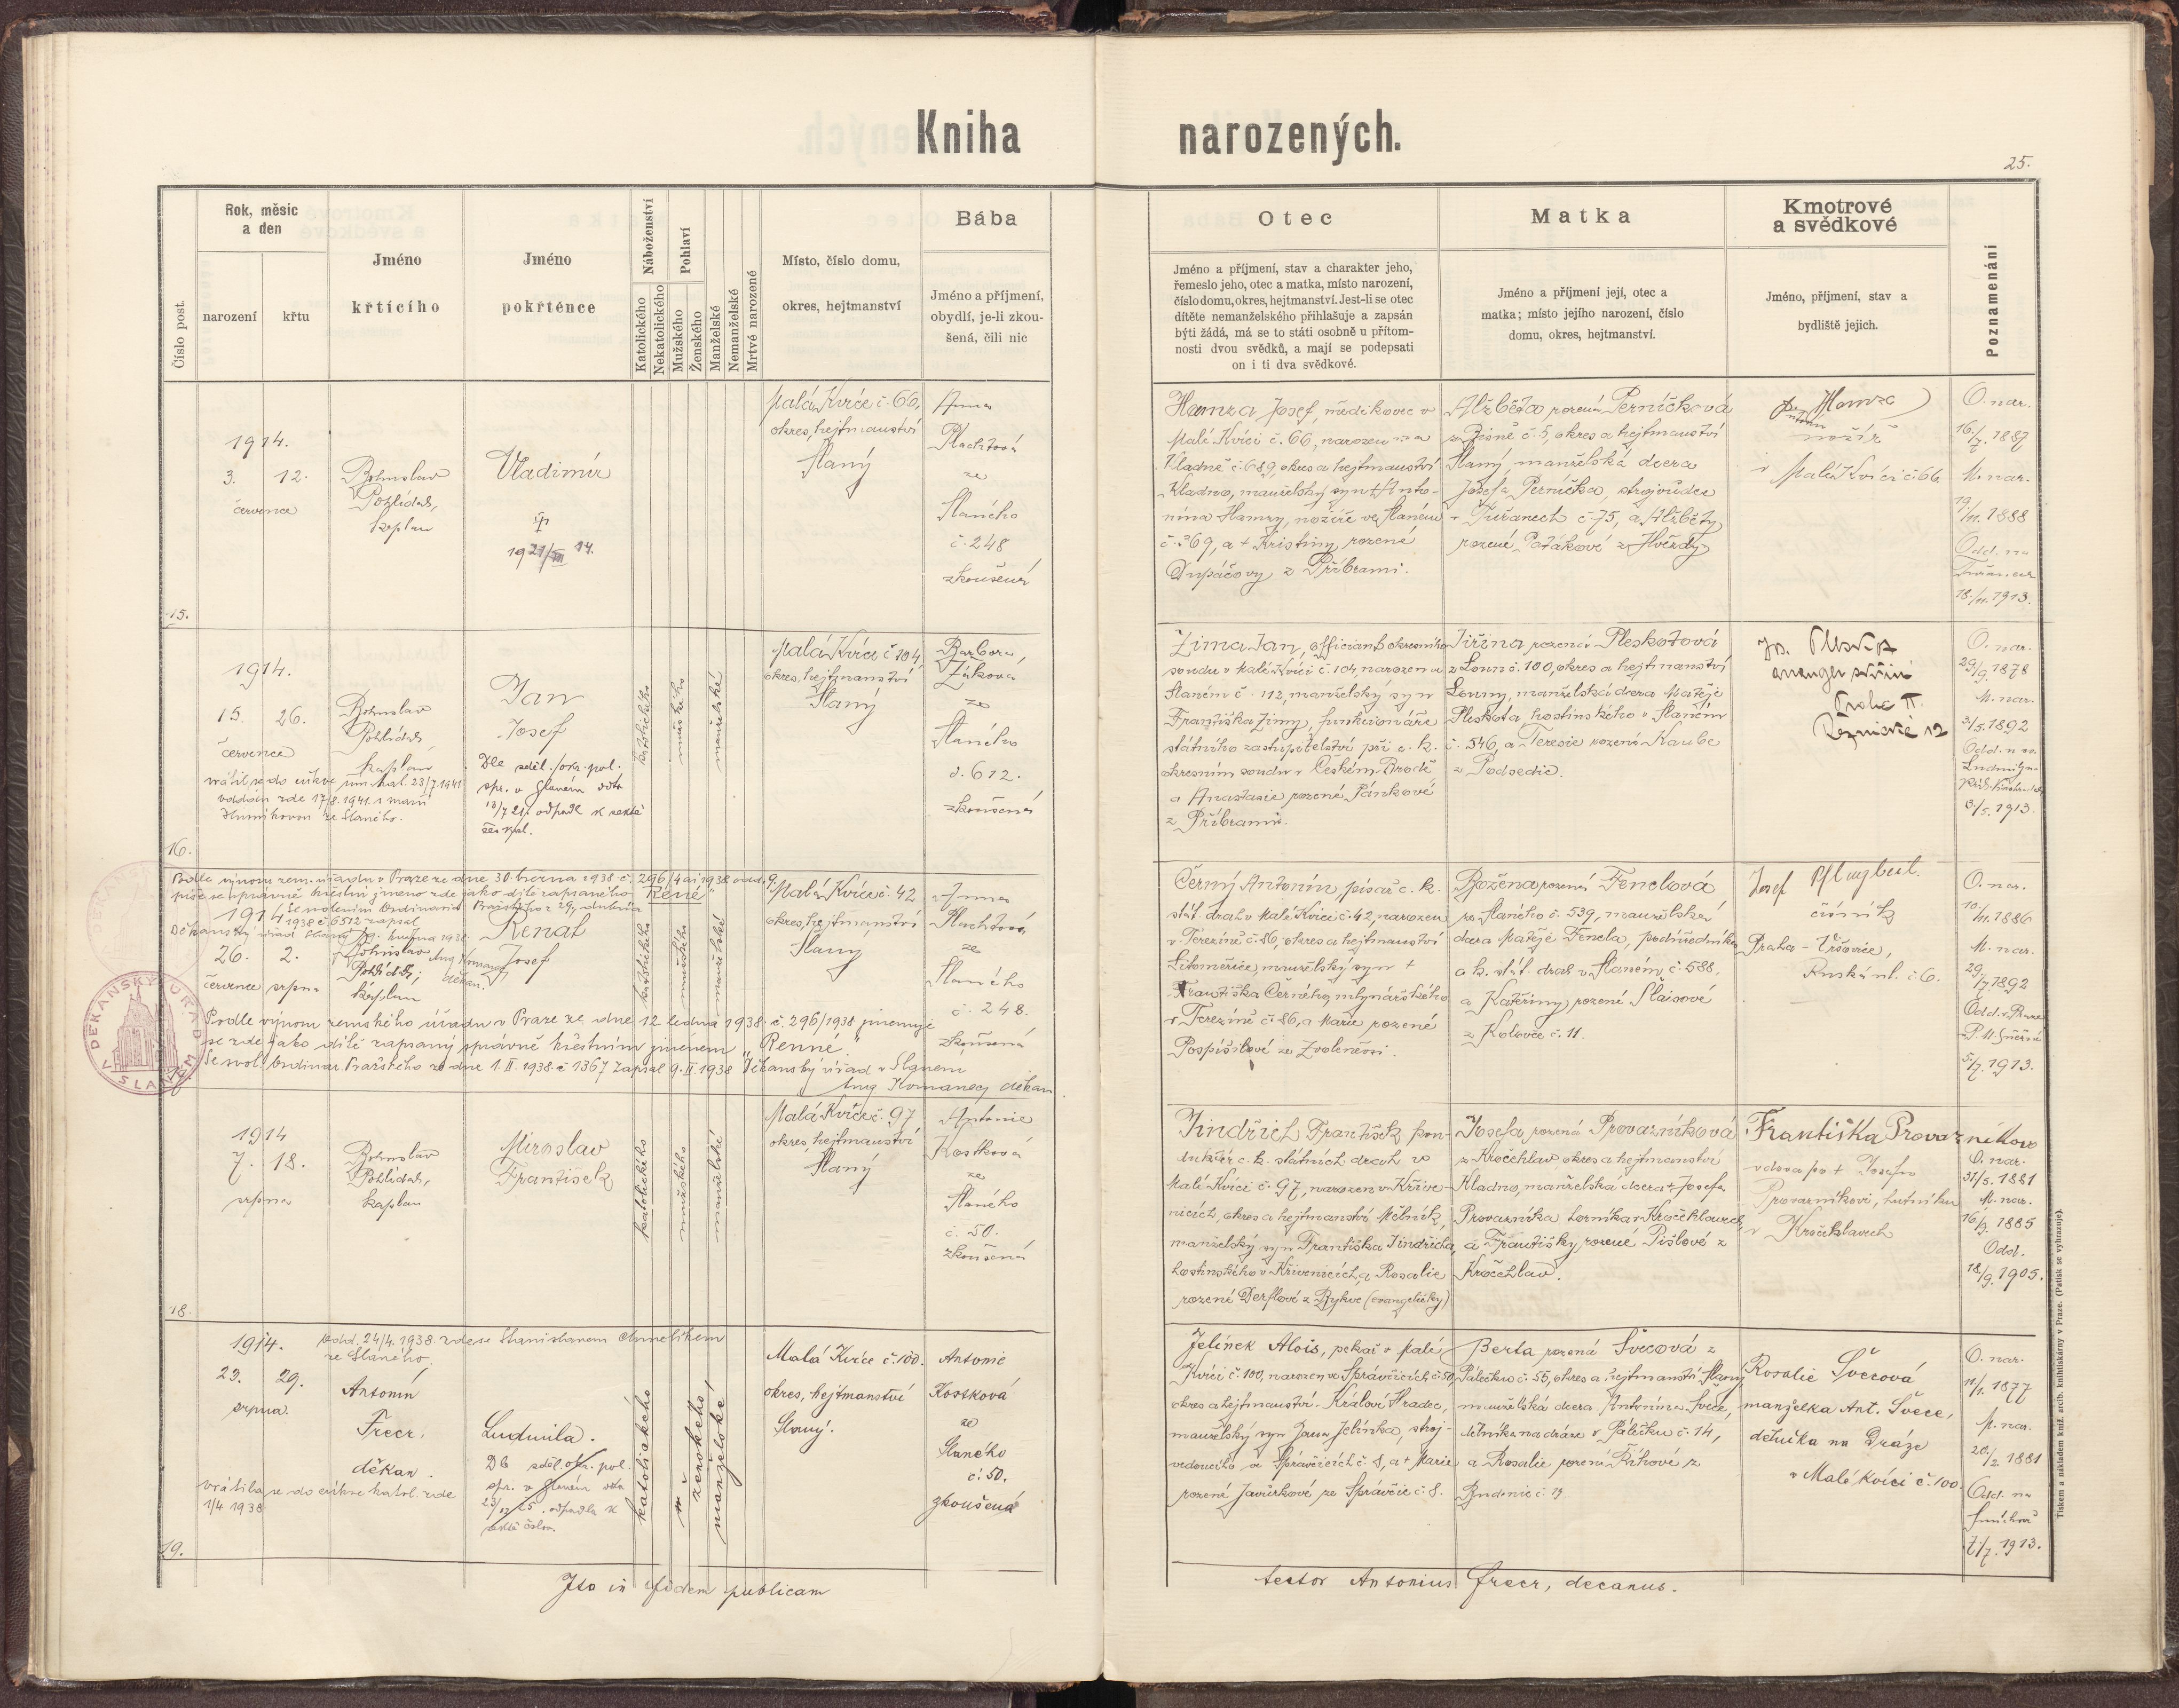 Kniha narozených.
25.
Číslo post.
Rok, měsíc
a den
narození
křtu
Jméno
křtícího
Jméno
pokřtěnce
Náboženství
Katolického
Nekatolického
Pohlaví
Mužského
Ženského
Manželské
Nemanželské
Mrtvě narozené
Místo, číslo domu,
okres, hejtmanství
Bába
Jméno a příjmení,
obydlí, je-li zkou-
šená, čili nic
Otec
Jméno a příjmení, stav a charakter jeho,
řemeslo jeho, otec a matka, místo narození,
číslo domu, okres, hejtmanství. Jest-li se otec
dítěte nemanželského přihlašuje a zapsán
býti žádá, má se to státi osobně u přítom-
nosti dvou svědků, a mají se podepsati
on i ti dva svědkové.
Matka
Jméno a příjmení její, otec a
matka; místo jejího narození, číslo
domu, okres, hejtmanství.
Kmotrové
a svědkové
Jméno, příjmení, stav a
bydliště jejich.
Poznamenání
15.
1914.
3. 12.
července
Bohuslav
Pohlídal,
kaplan
Vladimír
Malá Kvíce č. 66,
okres, hejtmanství
Slaný
Anna
Plachtová
ze
Slaného
č. 248
zkoušená
Hamza Josef, úředníkovec v
Malé Kvíci č. 66, narozen na
Kladně č. 689, okres a hejtmanství
Kladno, manželský syn † Anto-
nína Hamzy, nožíře ve Slaném
č. 369, a † Kristiny rozené
Dupáčovy z Příbrami.
Alžběta rozená Perníčková
č. 5, okres a hejtmanství
Slaný, manželská dcera
Josefa Perníčka, strojvůdce
v Tuřanech č. 75, a Alžběty
rozené Patákové z Hvězdy
Hamza
nožíř
v Malé Kvíci č. 66
O. nar.
16./7. 1887
M. nar.
19./11. 1888
Odd. na
18./11. 1913.
16.
1914.
15. 26.
července
Bohuslav
Pohlídal,
kaplan
Jan
Josef
Dle sděl. okr. pol.
spr. v Slaném
odpadl k sektě
vrátil se do církve řím. kat. 23/7. 1941
oddán zde 17/8. 1941 s Marií
ze Slaného.
katolického
mužského
manželské
Malá Kvíce č. 104
okres, hejtmanství
Slaný
Barbora
Žáková
ze
Slaného
č. 612.
zkoušená
Zima Jan, officiant okresního
soudu v Malé Kvíci č. 104, narozen v
Slaném č. 112, manželský syn
Františka Zimy, funkcionáře
státního zastupitelství při c. k.
okresním soudu v Českém Brodě
a Anastasie rozené Pánkové
z Příbramě.
Jiřina rozená Pleskotová
z Loun č. 100, okres a hejtmanství
Louny, manželská dcera Matěje
Pleskota, hostinského v Slaném
č. 546, a Teresie rozené Kaube
z Podsedic.
Jos. Pleskot
Praha II.
Řeznická 12
O. nar.
29/9. 1878
M. nar.
3/5. 1892
Odd. u sv.
Ludmily
3/5. 1913.
Podle výnosu zem. úřadu v Praze ze dne 30. března 1938 č. 296/4 ai 1938
píše se správně křestní jméno zde jako dítě zapsaného "René"
Se svolením Ordinariátu Pražského z 29. dubna
1938 č. 6512 zapsal
Děkanský úřad Slaný 9. května 1938
Aug. Komanec, děkan.
1914
26. 2.
července srpna
Bohuslav
Pohlídal,
kaplan
Renat
Josef
katolického
mužského
manželské
Podle výnosu zemského úřadu v Praze ze dne 12. ledna 1938 č. 296/1938 jmenuje
se zde jako dítě zapsaný správně křestním jménem "Renné".
Se svol. Ordinar. Pražského ze dne 1. II. 1938 č. 1367 zapsal 9. II. 1938 Děkanský úřad v Slaném
Aug. Komanec děkan
DĚKANSKÝ ÚŘAD V SLANÉM
Malá Kvíce č. 42
okres, hejtmanství
Slaný
Anna
Plachtová
ze
Slaného
č. 248.
zkoušená
Černý Antonín, písař c. k.
stát. drah v Malé Kvíci č. 42, narozen
v Terezíně č. 86, okres a hejtmanství
Litoměřice, manželský syn †
Františka Černého, mlynářského
v Terezíně č. 86, a Marie rozené
Pospíšilové ze Zvoleněvsi.
Božena rozená Fenclová
ze Slaného č. 539, manželská
dcera Matěje Fencla, podúředníka
c. k. stát. drah v Slaném č. 588,
a Kateřiny rozené Slaisové
z Kolovče č. 11.
Josef
číšník
Praha - Vršovice,
Ruská ul. č. 6.
O. nar.
10./11. 1886
M. nar.
29./7. 1892
Odd. v Praze
P. M. Sněžné
5/7. 1913.
18.
1914
7. 18.
srpna
Bohuslav
Pohlídal,
kaplan
Miroslav
František
katolického
mužského
manželské
Malá Kvíce č. 97
okres, hejtmanství
Slaný
Antonie
Kostková
ze
Slaného
č. 50.
zkoušená
Jindřich František, kon-
duktér c. k. státních drah v
Malé Kvíci č. 97, narozen v Křive-
nicích, okres a hejtmanství Mělník,
manželský syn Františka Jindřicha,
hostinského v Křivenicích, a Rosalie
rozené Derflové z Bykve (evangeličky)
Josefa rozená Provazníková
z Kročehlav, okres a hejtmanství
Kladno, manželská dcera † Josefa
Provazníka, horníka v Kročehlavech,
a Františky rozené Pišlové z
Kročehlav.
Františka Provazníkova
vdova po † Josefu
Provazníkovi, hutníku
v Kročehlavech
O. nar.
31/5. 1881
M. nar.
16/9. 1885
Odd.
18/9. 1905.
19.
1914.
23. 29.
srpna.
Odd. 24/4. 1938. zde se Stanislavem Chmelíkem
ze Slaného.
Antonín
Frecr,
děkan.
vrátila se do církve katol. zde
1/4 1938
Ludmila.
Dle sděl. okr. pol.
spr. v Slaném
odpadla k
sektě českosl.
katolického
ženského
manželské
Malá Kvíce č. 100.
okres, hejtmanství
Slaný.
Antonie
Kostková
ze
Slaného
č. 50.
zkoušená
Jelínek Alois, pekař v Malé
Kvíci č. 100, narozen ve Správčicích č. 50,
okres a hejtmanství Králové Hradec,
manželský syn Jana Jelínka, stroj-
vedoucího ve Správčicích č. 8, a † Marie
rozené Javůrkové ze Správčic č. 8.
Berta rozená Švecová z
Pálečku č. 55, okres a hejtmanství Slaný,
manželská dcera Antonína Švece,
dělníka na dráze v Pálečku č. 14,
a Rosalie rozené Říhové z
Budenic č. 19
Rosalie Švecová
manželka Ant. Švece,
dělníka na Dráze
v Malé Kvíci č. 100
O. nar.
11/1. 1877
M. nar.
20/2. 1881
Odd. na
Smíchově
1913.
Ita in fidem publicam testor Antonius Frecr, decanus.
Tiskem a nákladem kníž. arcib. knihtiskárny v Praze. (Patisk se vyhrazuje).